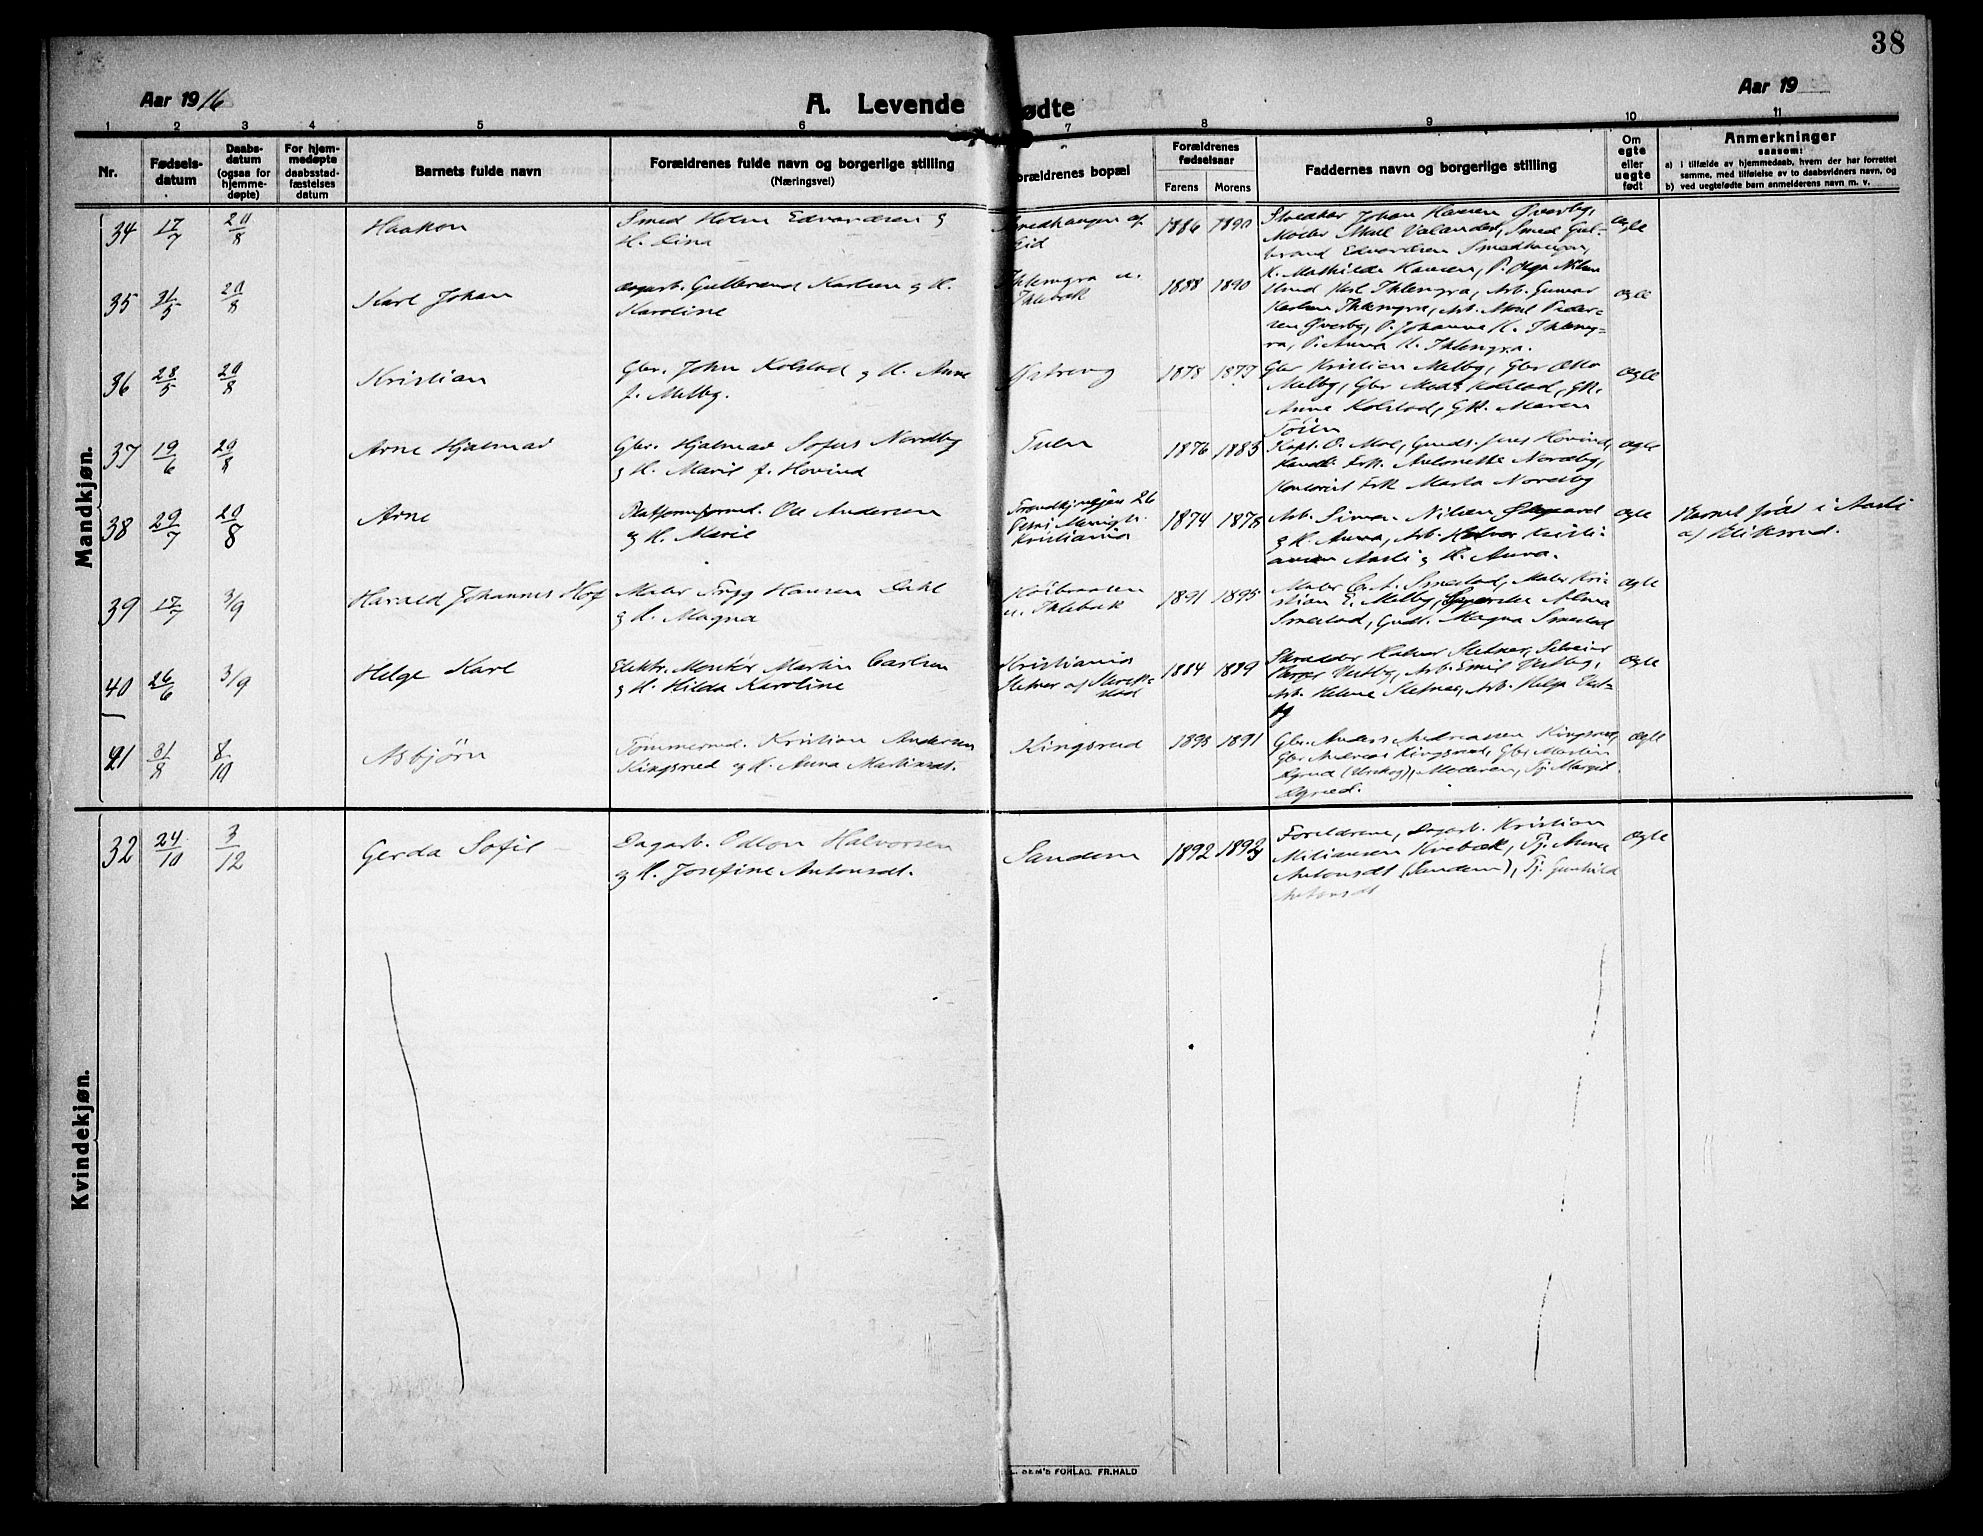 38
Aar 1916
A. Levende
ødte
Aar 19
1 2 3 4 5 6 7 8 9 10 11
Nr.
Fødsels-
datum
Daabs-
datum
(ogsaa for
hjemme-
døpte)
For hjem-
medøpte
daabsstad-
fæstelses
datum
Barnets fulde navn
Forældrenes fulde navn og borgerlige stilling
(Næringsvei)
orældrenes bopæl
Forældrenes
fødselsaar
Farens Morens
Faddernes navn og borgerlige stilling
Om
egte
eller
uegte
født
Anmerkninger
saasom:
a) i tilfælde av hjemmedaab, hvem der har forrettet
samme, med tilføielse av to daabsvidners navn, og
b) ved uegtefødte barn anmelderens navn m. v.
Mandkjøn.
34 17/7 20/8 Haakon
Smed Holm Edvardsen og
H. Lina
Smedhaugen af
Eid
1886 1890
Johan Hansen Øverby,
Maler Valander, Smed Gul-
brand Edvardsen Smedhaugen,
K. Mathilde Hansen, P. Olga Nilsen
ægte
35 31/5 20/8 Karl Johan
Dagarb. Gulbrand Karlsen og H.
Karoline
Ihlengra u.
Ihlebæk
1888 1890
Karl Ihlengra, Arb. Gunnar
Karlsen Ihlengra, Arb. Peder-
sen Øverby, P. Johanne K. Ihleng-
ra, P. Anna K. Ihlengra.
ægte
36 28/5 20/8 Kristian
Gbr. John Kolstad og H. Anne
f. Melby.
Østreng
1878 1877
Gbr Kristian Melby, Gbr Otto
Melby, Gbr Mads Kolstad, GK.
Anne Kolstad, GK. Maren
ægte
37 19/6 20/8 Arne Hjalmar
Gbr. Hjalmar Sofus Nordby
og H. Marie f. Hovind
Tuen
1876 1883
Kapt. O. Moe, Gaards. Jens Hovind,
Handl. Frk. Antonette Nordby,
Kontorist Frk Marta Nordby
ægte
38 29/7 20/8 Arne
Platformformd. Ole Andersen
og H. Marie
26
Kristiania
1874 1878
Arb. Simen Nilsen
og H. Anna, Arb. Halvor Kristi-
ansen Aasli og H. Anna.
ægte
Barnet født i Aasli
af Eiksrud.
39 17/7 3/9 Harald Johannes Hof
Maler Trygg Hansen Dahl
og H. Magna
Høibraaten
u. Ihlebæk
1891 1895
Maler C. A. Smestad, Maler Kri-
stian E. Melby, Alma
Smestad, Gaardt. Magna Smestad
ægte
40 26/6 3/9 Helge Karl
Elektr. Montør Martin Carlsen
og H. Hilda Karoline
Kristiania
Sletner af
stad
1884 1889
Skrædder Halvor Sletner,
Vestby, Arb. Emil Vestby,
Arb. Helene Sletner, Arb. Helga Vest-
by
ægte
41 31/8 8/10 Asbjørn
Tømmermd. Kristian Andersen
Kingsrud og H. Anna Martinsdt.
Kingsrud
1893 1891
Gbr. Anders Andreassen Kingsrud,
Gbr Andreas Kingsrud, Gbr Martin
(Urskog), Moderen, Tj. Margit
ægte
Kvindekjøn.
32 24/10 3/12 Gerda Sofie
Dagarb. Odlon Halvorsen
og H. Josefine Antonsdt.
Sandem
1892 1892
Forældrene, Dagarb. Kristian
Kvebæk, Tj. Anna
Antonsdt (Sandem), Tj. Gunhild
Antonsdt
ægte
FORLAG. FR. HALD